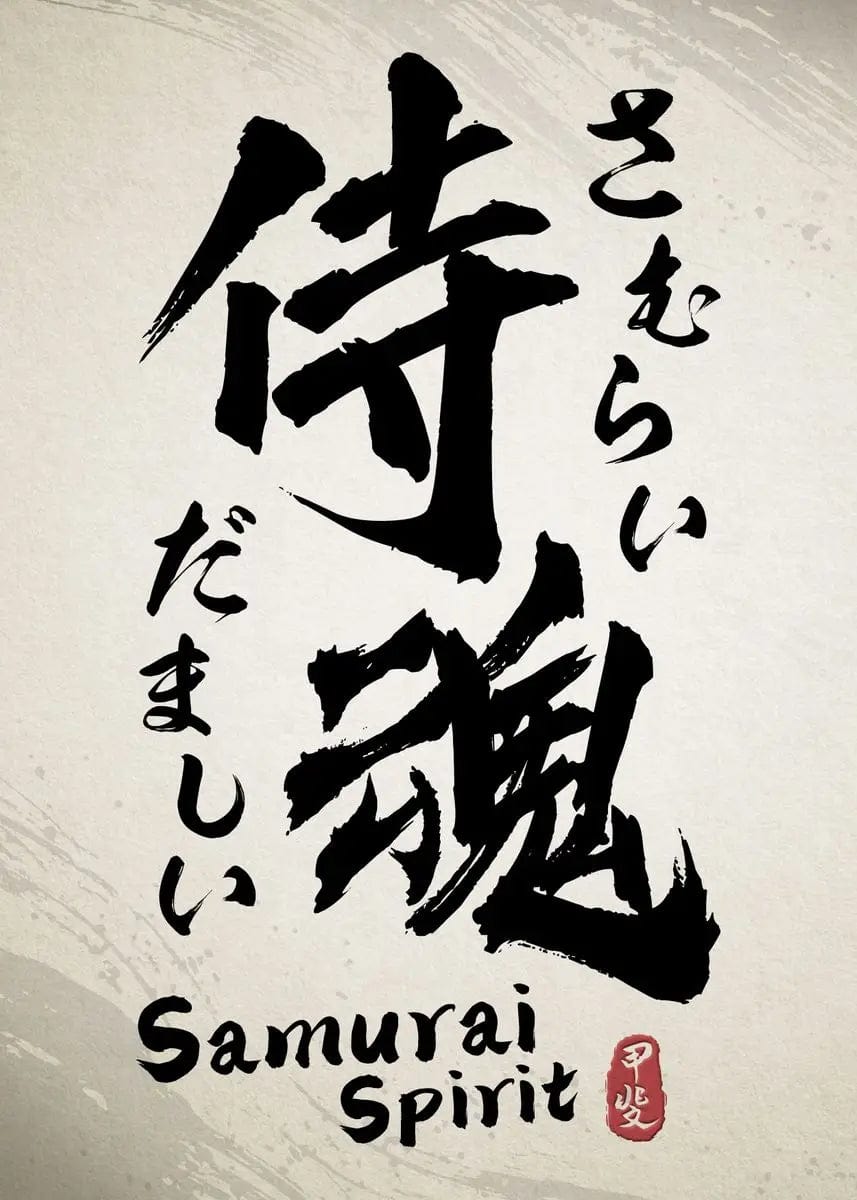 侍魂
さむらい
だましい
Samurai
Spirit
甲斐